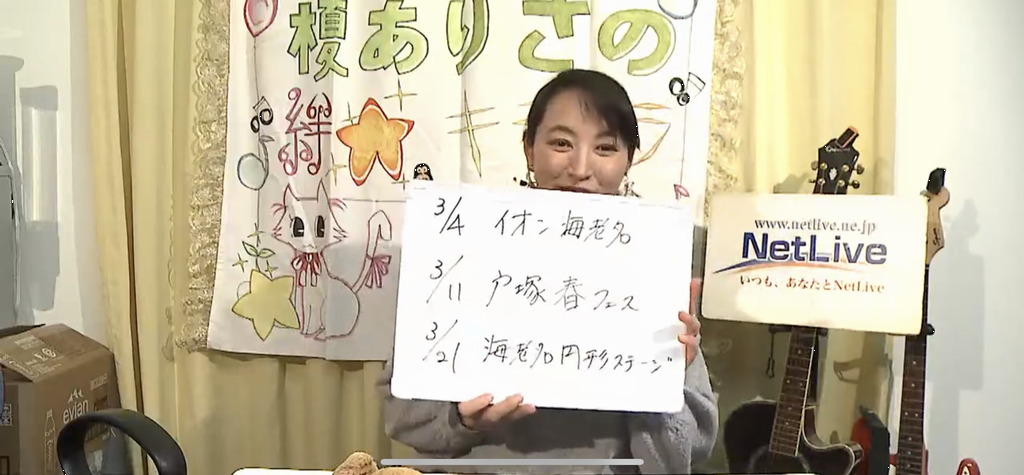 榎ありさの
絆★キラ
3/4 イオン海老名
3/11 戸塚春フェス
3/21 海老名円形ステージ
www.netlive.ne.jp
NetLive
いつも、あなたとNetLive
evian